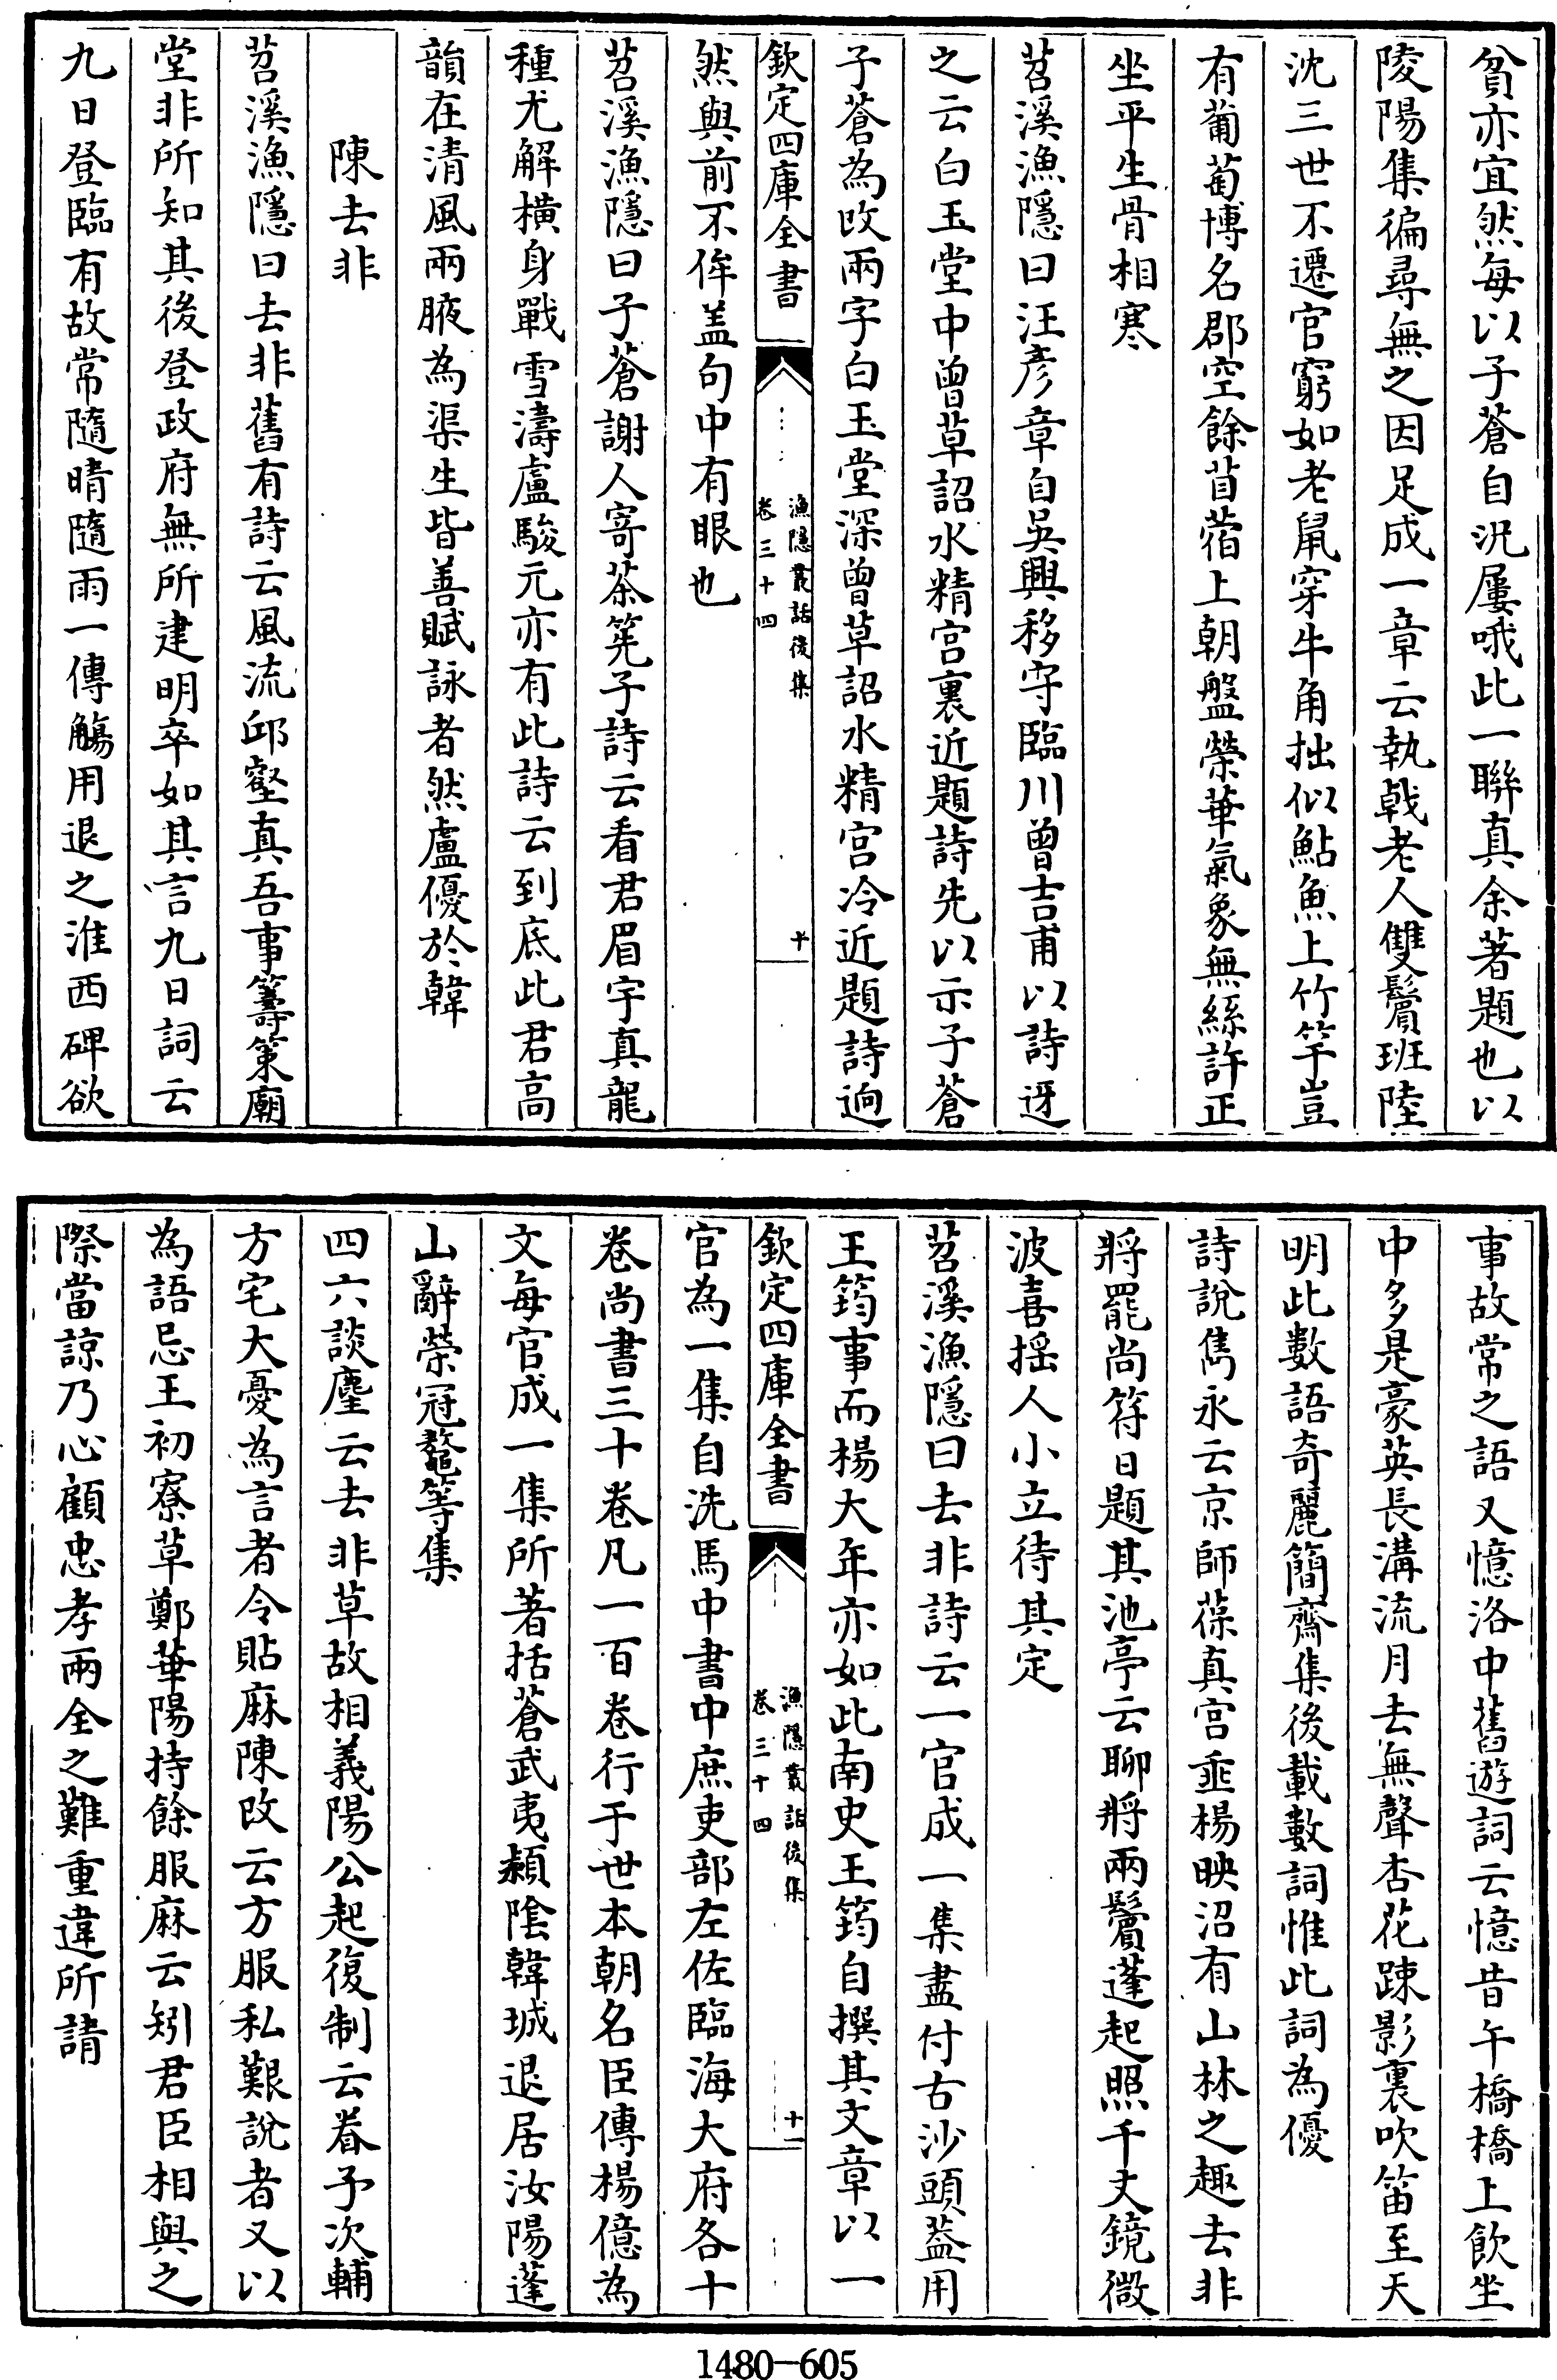 貧亦宜然每以子蒼自況屢哦此一聯真余著題也以
陵陽集徧尋無之因足成一章云執戟老人雙鬢班陸
沈三世不遷官窮如老鼠穿牛角拙似鮎魚上竹竿豈
有葡萄博名郡空餘苜蓿上朝盤榮華氣象無絲許正
坐平生骨相寒
苕溪漁隱曰汪彦章自吳興移守臨川曾吉甫以詩迓
之云白玉堂中曾草詔水精宫裏近題詩先以示子蒼
子蒼為改兩字白玉堂深曾草詔水精宫冷近題詩逈
欽定四庫全書
漁隱叢話後集
卷三十四
十
然與前不侔盖句中有眼也
苕溪漁隱曰子蒼謝人寄茶筅子詩云看君眉宇真龍
種尤解横身戰雪濤盧駿元亦有此詩云到底此君高
韻在清風兩腋為渠生皆善賦詠者然盧優於韓
陳去非
苕溪漁隱曰去非舊有詩云風流邱壑真吾事籌策廟
堂非所知其後登政府無所建明卒如其言九日詞云
九日登臨有故常隨晴隨雨一傳觴用退之淮西碑欲
事故常之語又憶洛中舊遊詞云憶昔午橋橋上飲坐
中多是豪英長溝流月去無聲杏花踈影裏吹笛至天
明此數語奇麗簡齋集後載數詞惟此詞為優
詩說雋永云京師葆真宫垂楊映沼有山林之趣去非
將罷尚符日題其池亭云聊將兩鬢蓬起照千丈鏡微
波喜揺人小立待其定
苕溪漁隱曰去非詩云一官成一集盡付古沙頭葢用
王筠事而楊大年亦如此南史王筠自撰其文章以一
欽定四庫全書
漁隱叢話後集
卷三十四
十一
官為一集自洗馬中書中庶吏部左佐臨海大府各十
卷尚書三十卷凡一百卷行于世本朝名臣傳楊億為
文每官成一集所著括蒼武夷潁陰韓城退居汝陽蓬
山辭榮冠鼇等集
四六談麈云去非草故相義陽公起復制云眷予次輔
方宅大憂為言者令貼麻陳改云方服私艱說者又以
為語忌王初寮草鄭華陽持餘服麻云矧君臣相與之
際當諒乃心顧忠孝兩全之難重違所請
1480—605